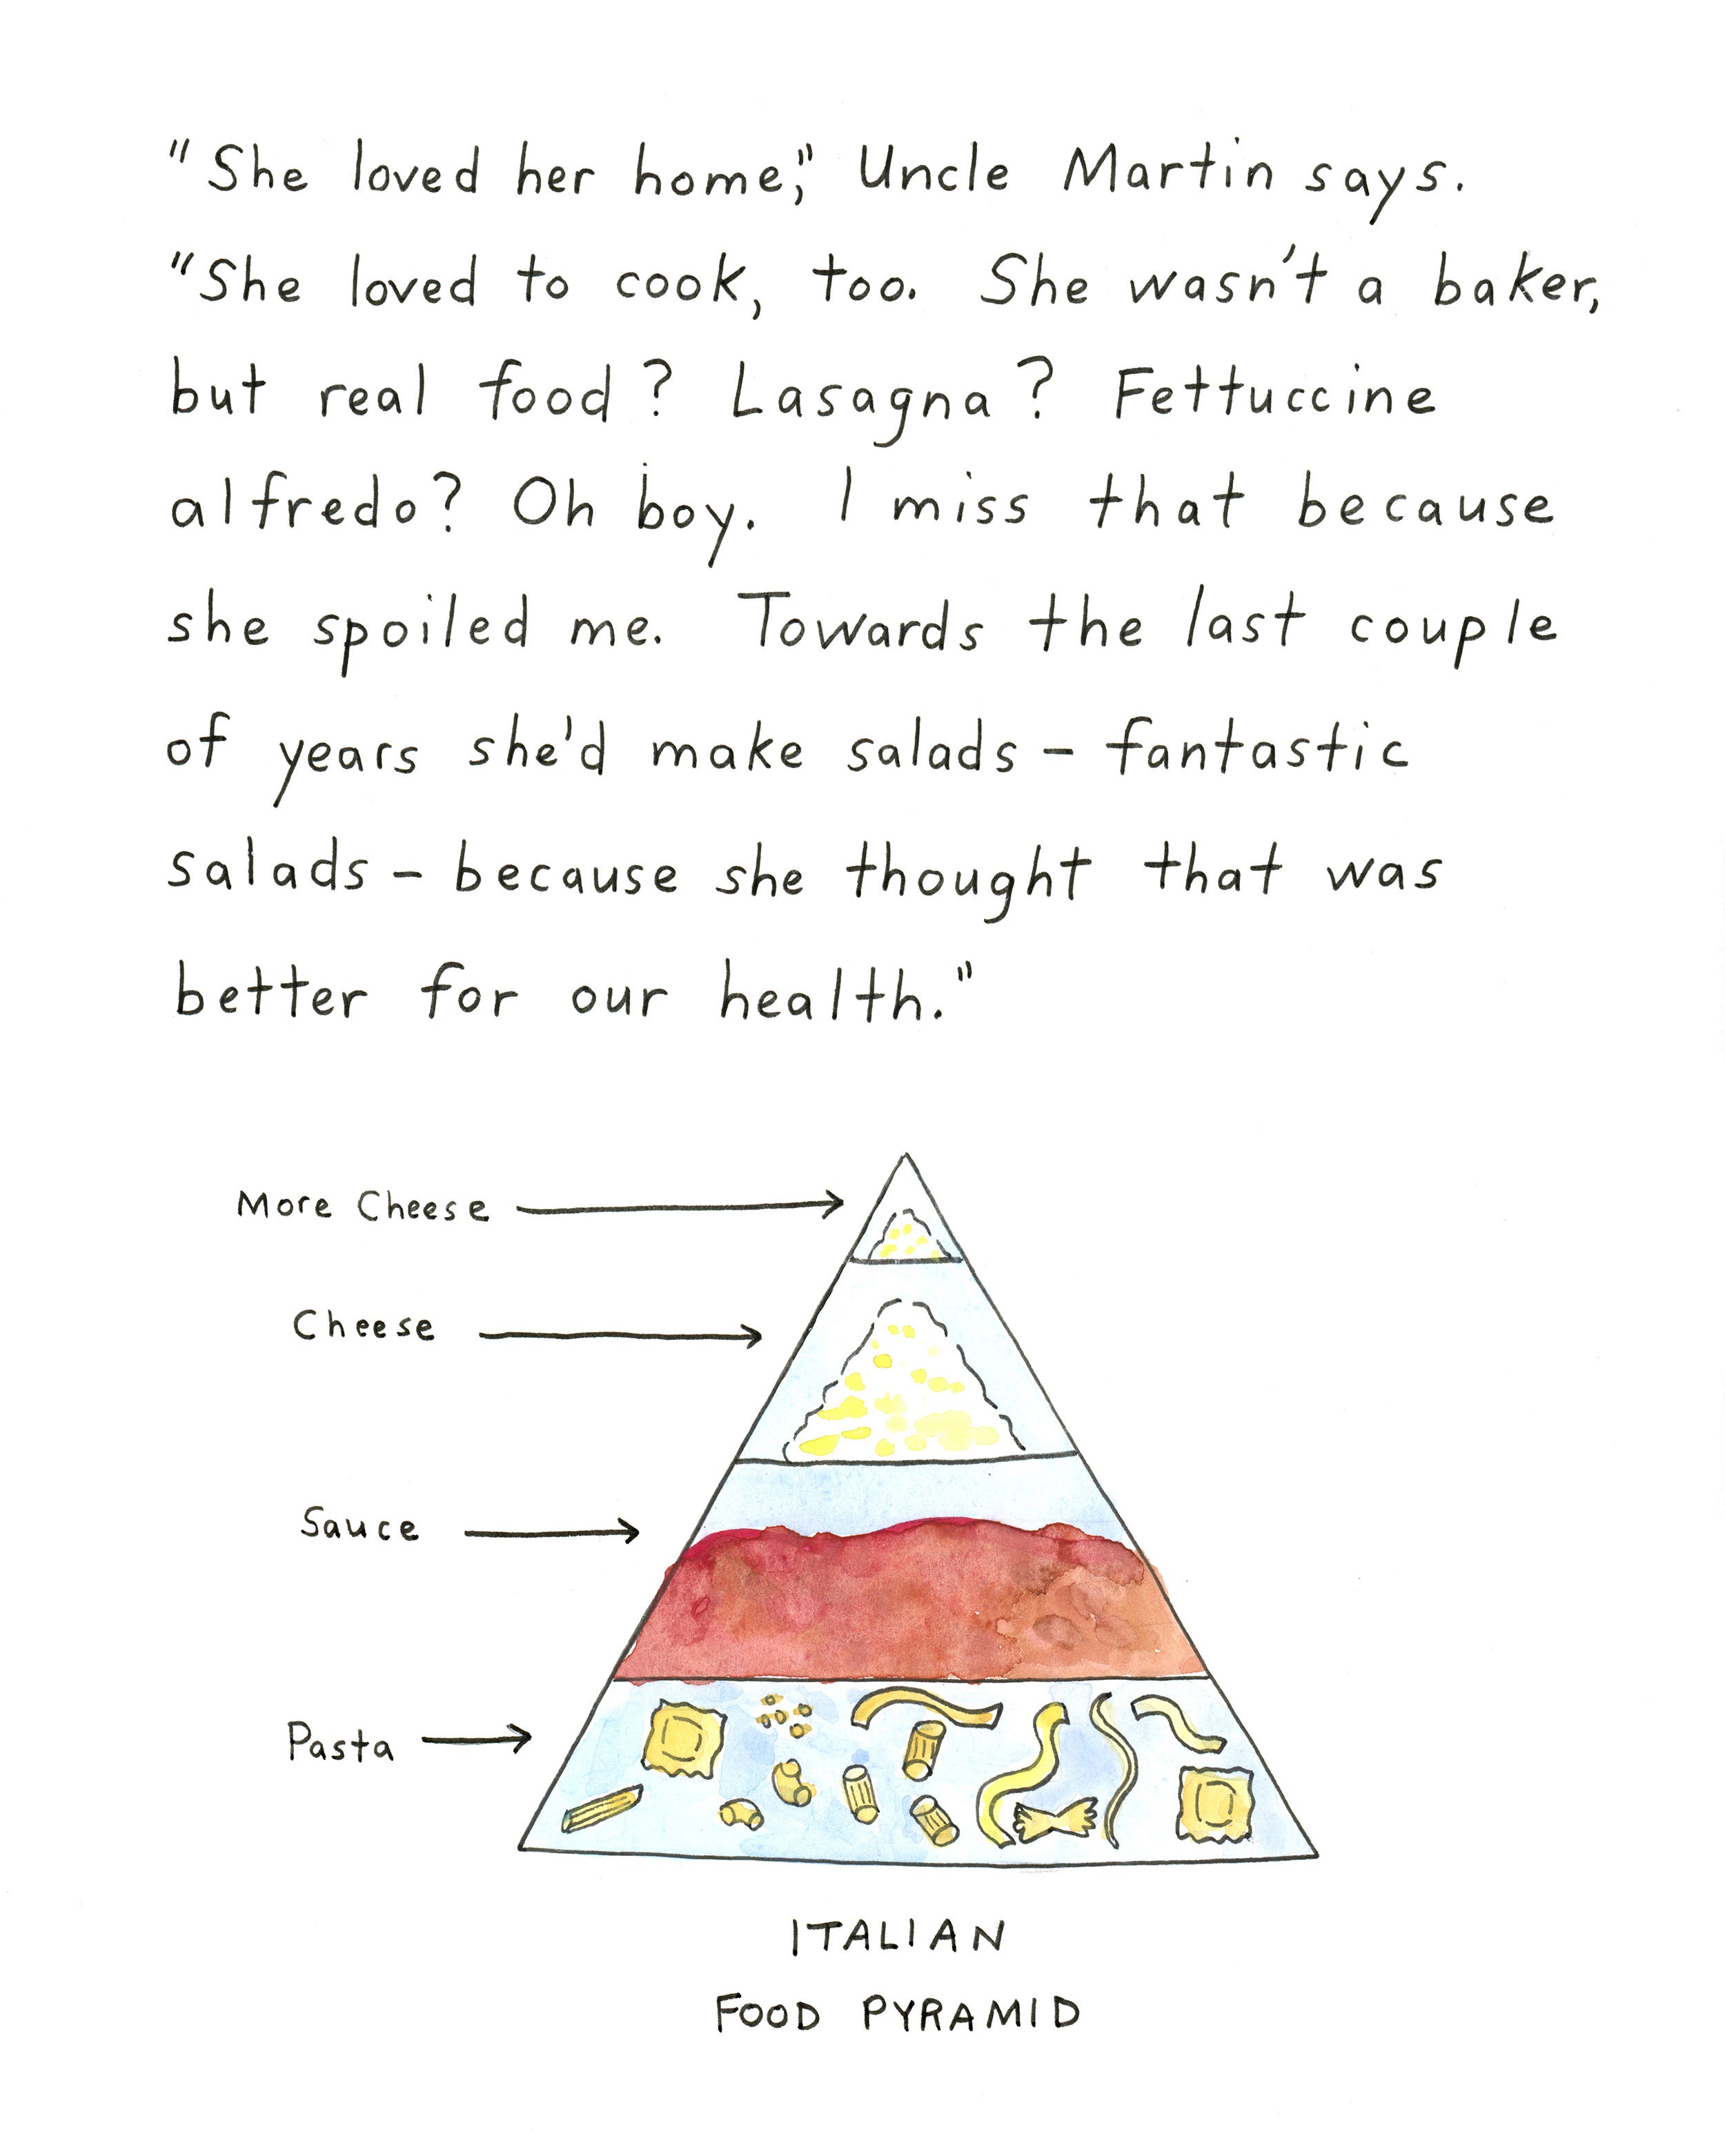 "She loved her home," Uncle Martin says.
"She loved to cook, too. She wasn't a baker,
but real food? Lasagna? Fettuccine
alfredo? Oh boy. I miss that because
she spoiled me. Towards the last couple
of years she'd make salads – fantastic
salads – because she thought that was
better for our health."
More Cheese
Cheese
Sauce
Pasta
ITALIAN
FOOD PYRAMID